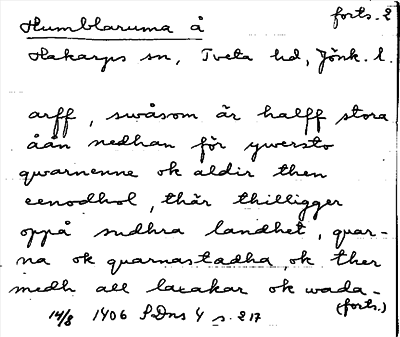 Humblaruma å forts. 2
Hakarps sn, Tveta hd, Jönk. l.
arff, swåsom är halff stora
åån nedhan för ywersto
qwarnenne ok aldir then
eenodhol, thär thilligger
oppå sudhra landhet, quar-
na ok quarnastadha, ok ther
medh all laxakar ok wada-
(forts.)
14/8 1406 SDns 4 s. 217